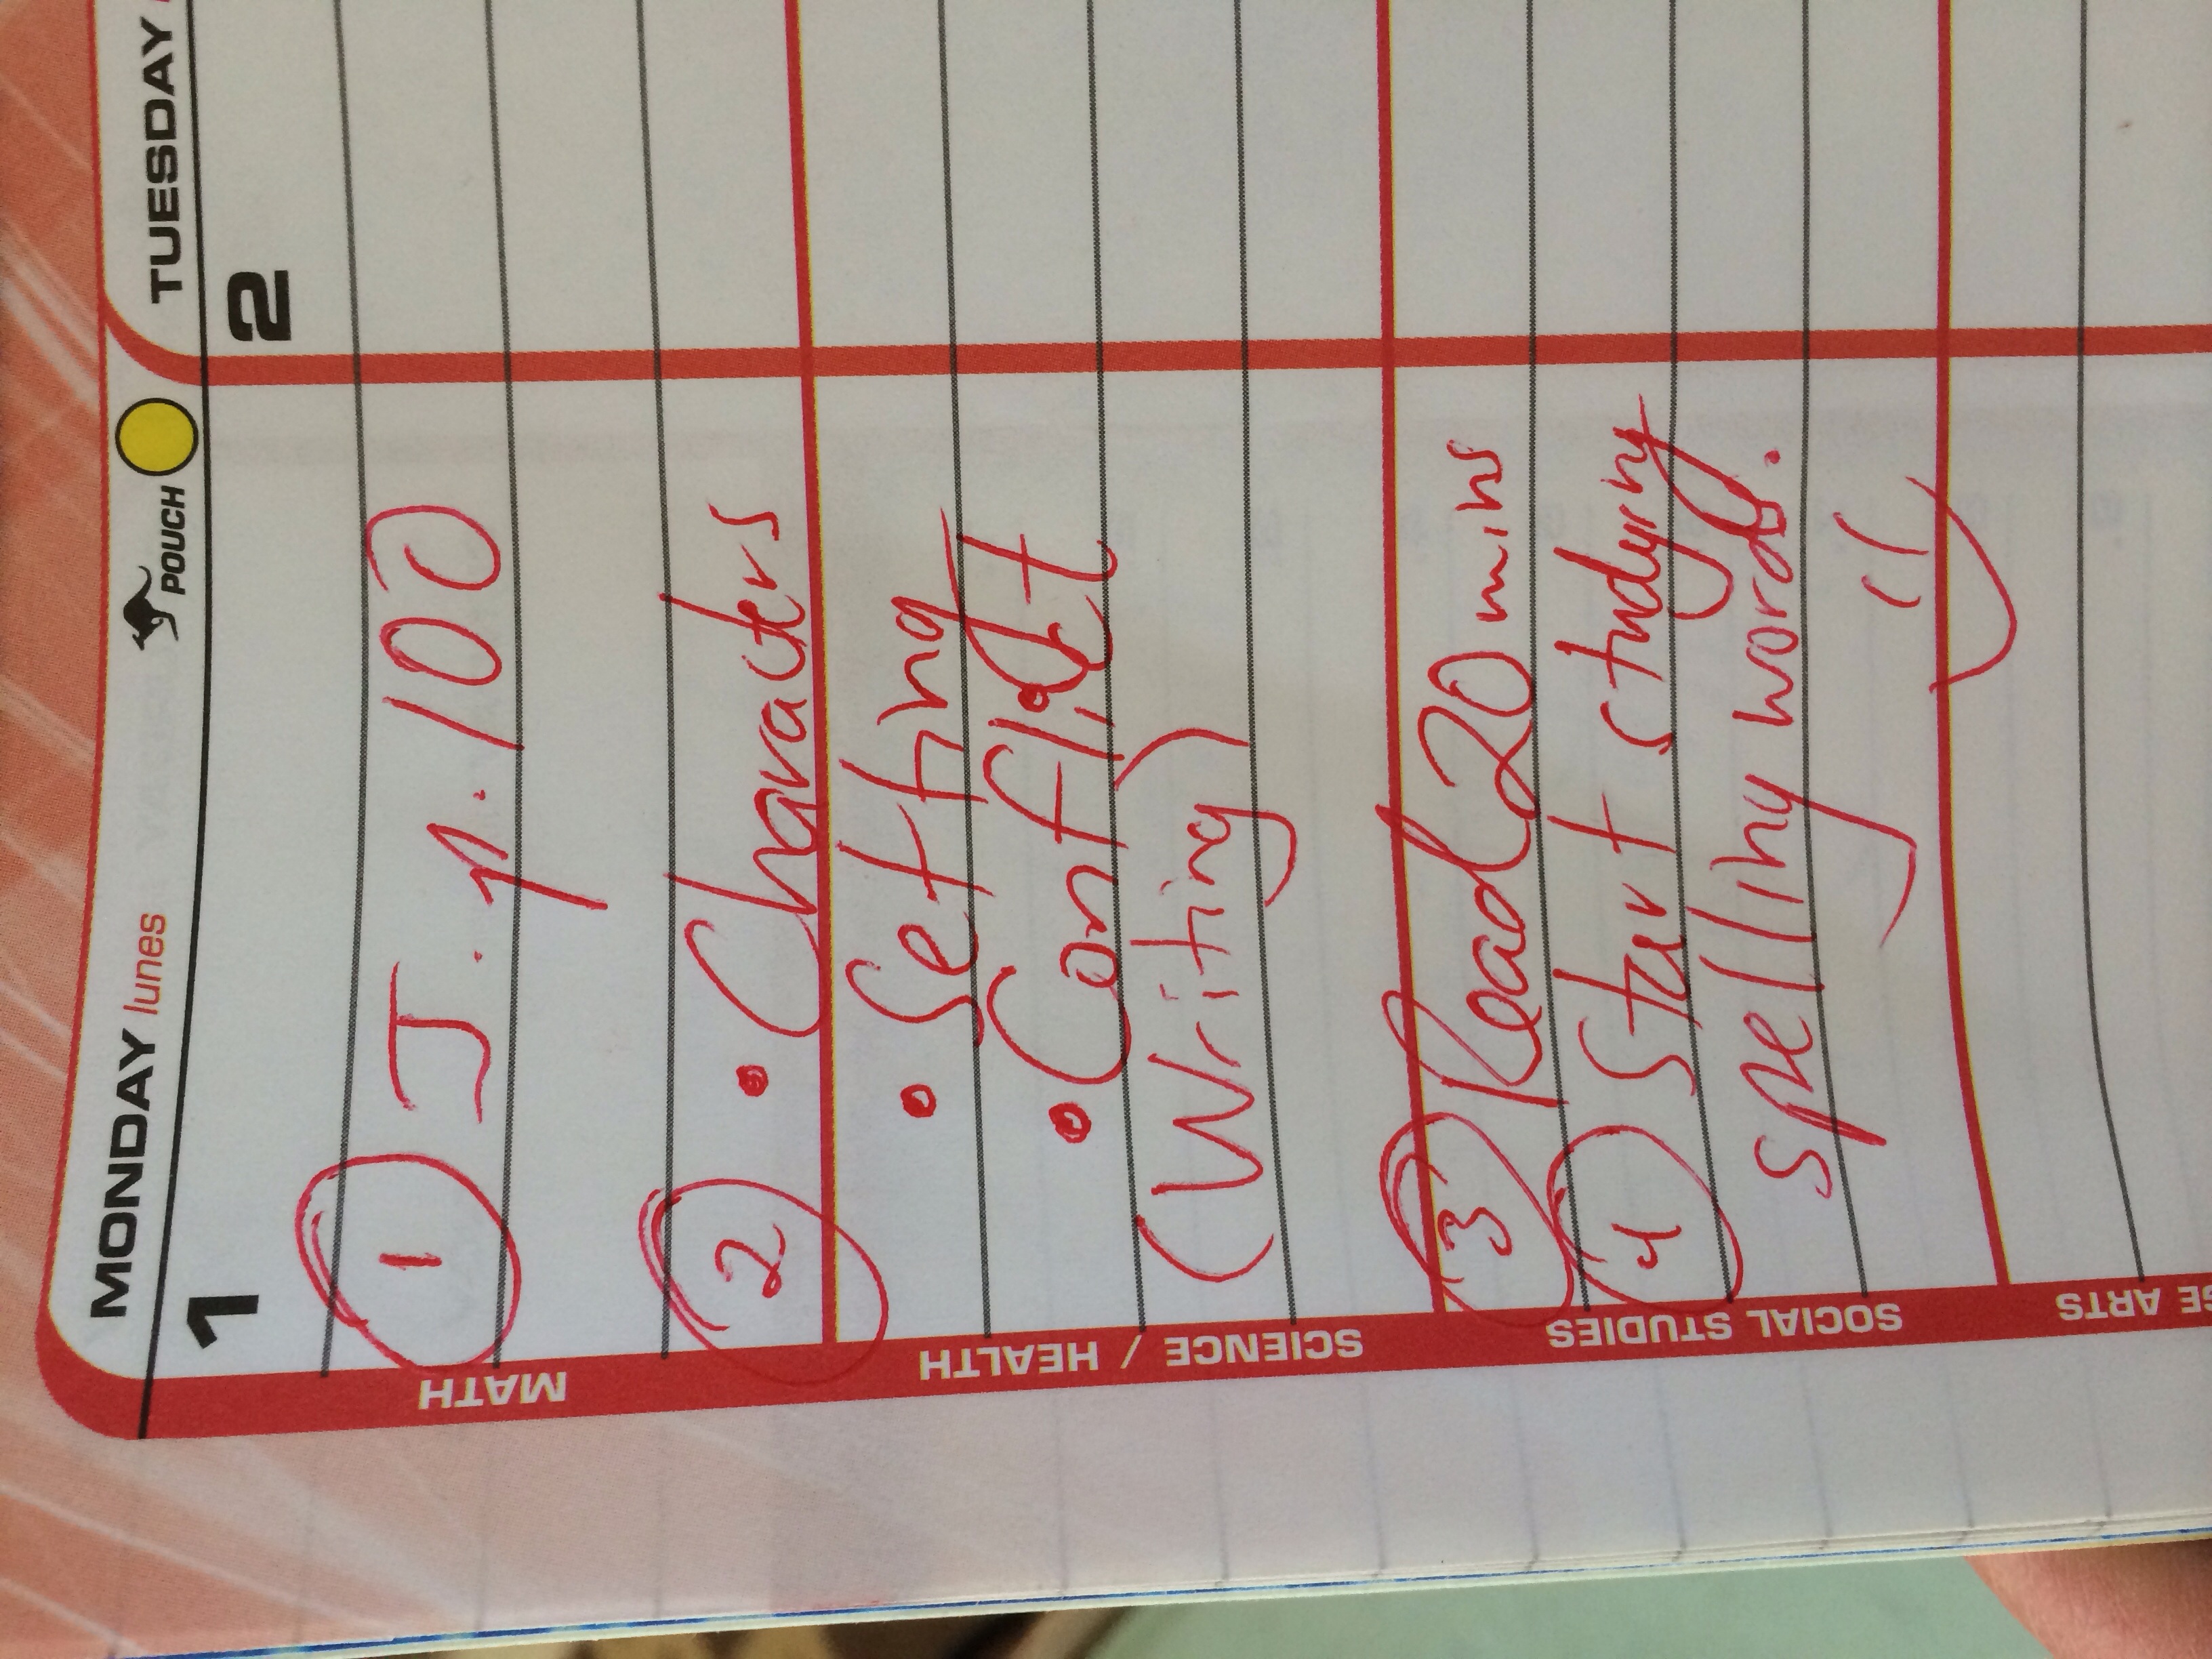 MONDAY lunes
POUCH
TUESDAY
1
2
MATH
① J. p. 100
② • Characters
SCIENCE / HEALTH
• Setting
• Conflict
(Writing)
SOCIAL STUDIES
③ Read 20 mins
④ Start studying
spelling words.
ARTS